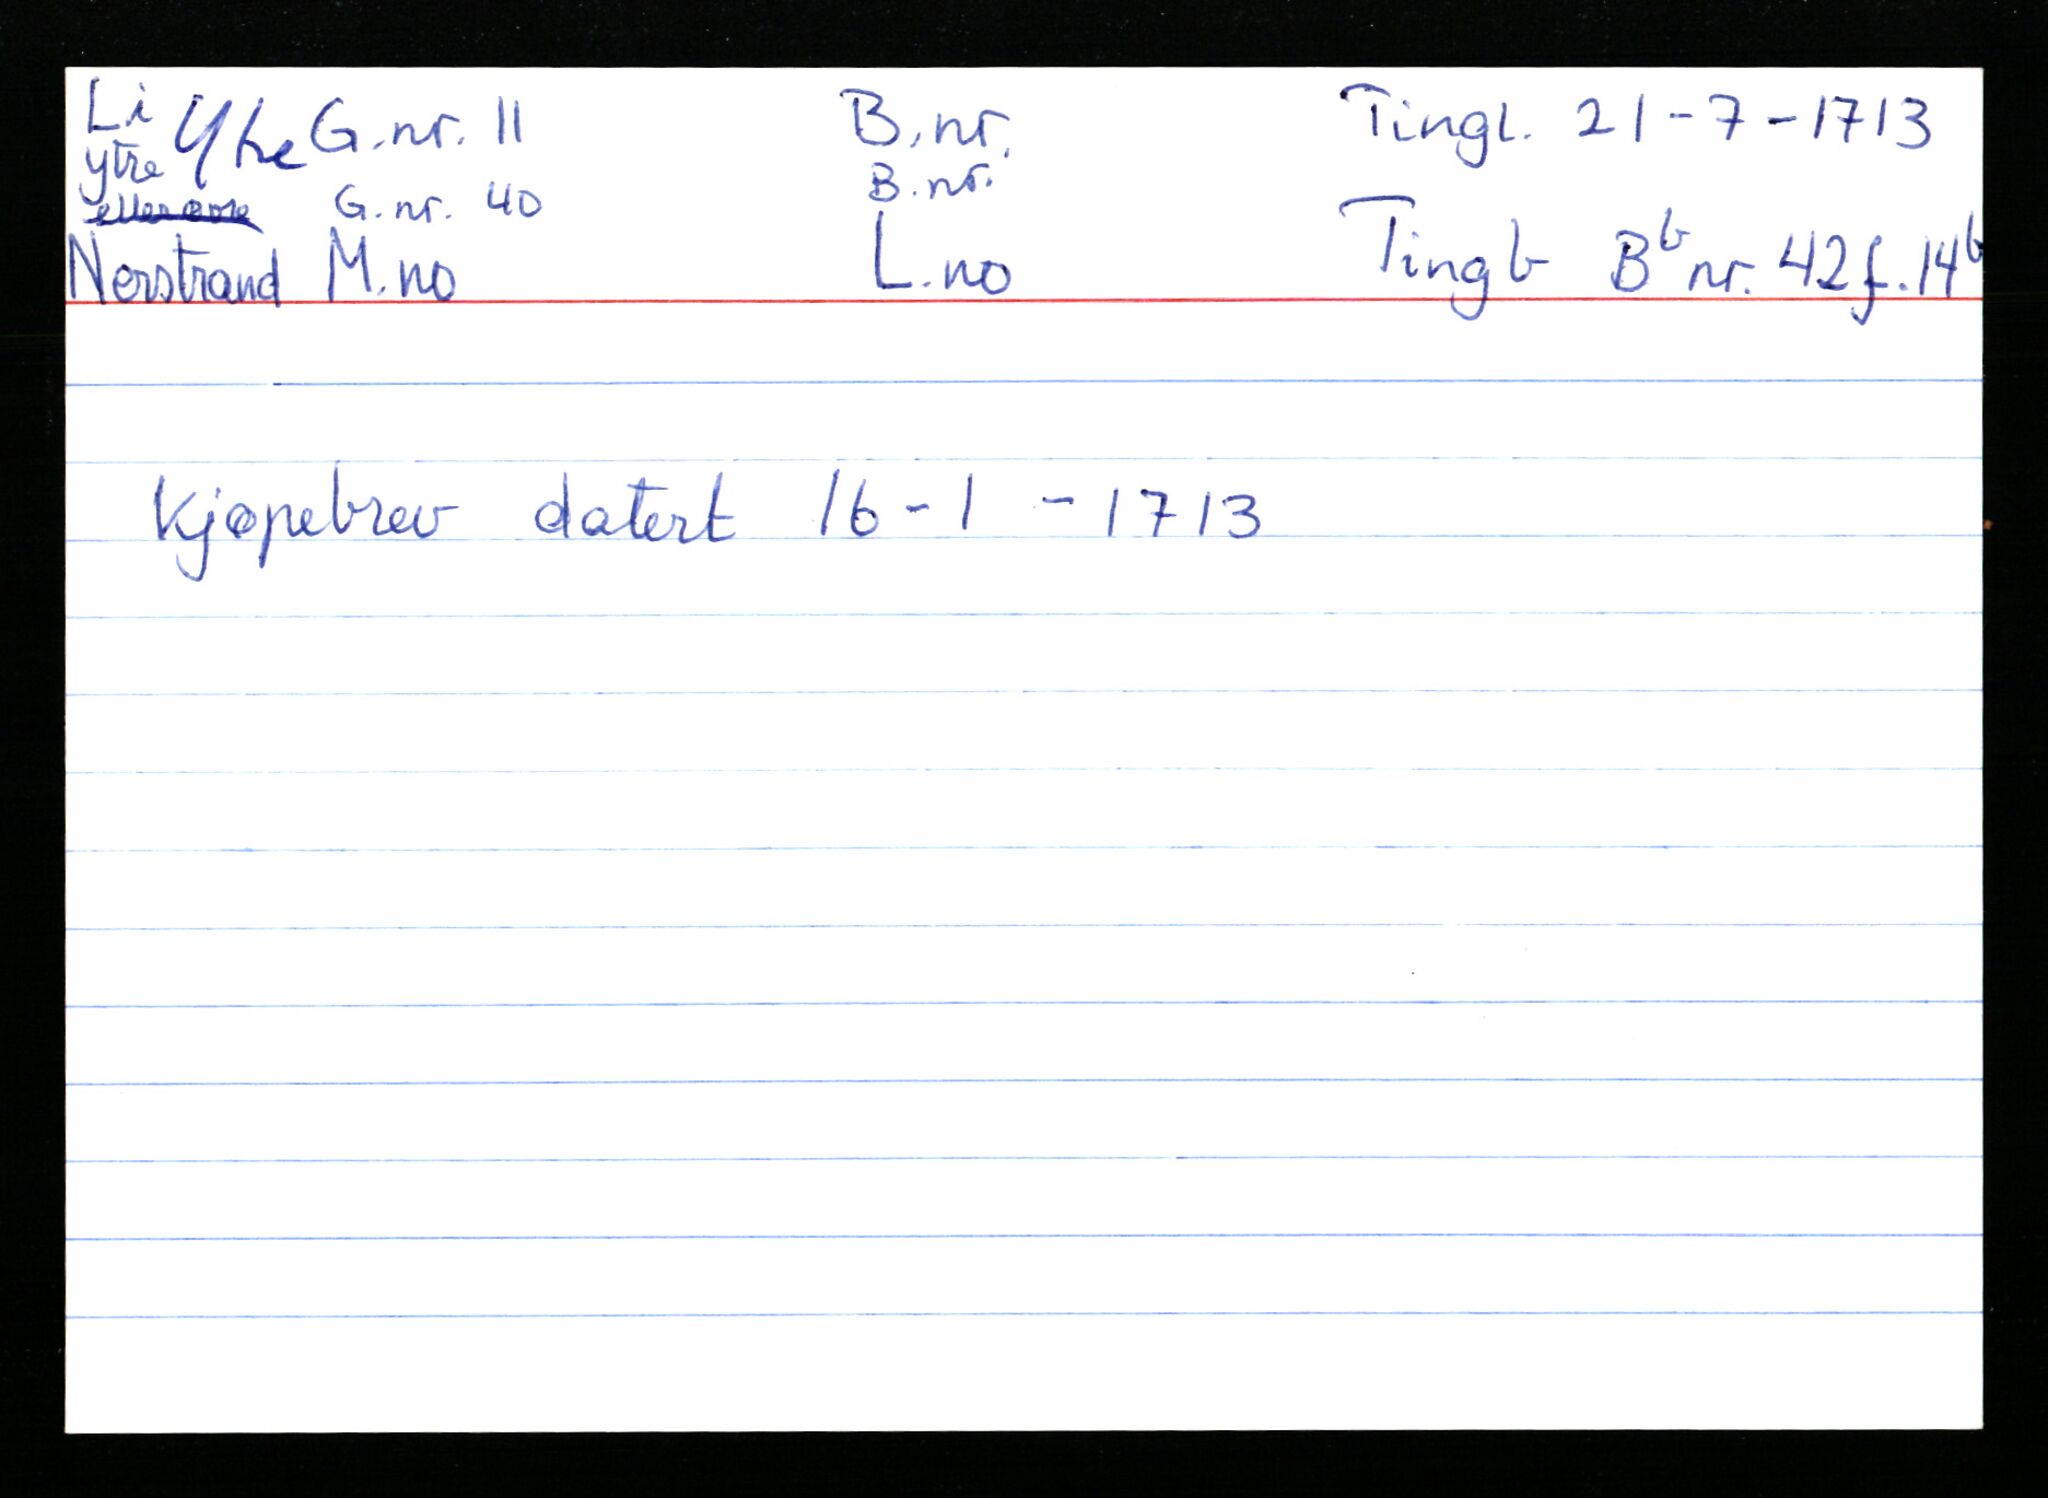 Li Ytre G.nr. 11 B.nr. Tingl. 21-7-1713
ytre
G.nr. 40 B.nr.
Nerstrand M.no L.no Tingb Bb nr. 42 f. 14b
Kjøpebrev datert 16-1-1713